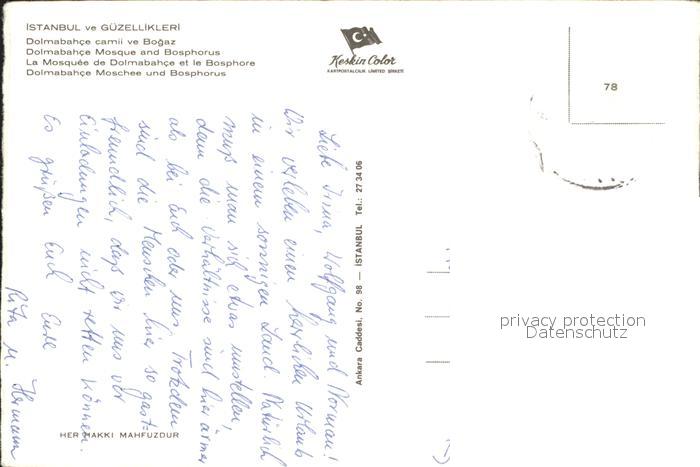 İSTANBUL ve GÜZELLİKLERİ
Dolmabahçe camii ve Boğaz
Dolmabahçe Mosque and Bosphorus
La Mosquée de Dolmabahçe et le Bosphore
Dolmabahçe Moschee und Bosphorus
Keskin Color
KARTPOSTALCILIK LIMITED ŞİRKETİ
78
Liebe Irma, Wolfgang und Norman!
Wir verleben einen herrlichen Urlaub
in einem sonnigen Land. Natürlich
muß man sich etwas umstellen,
denn die Verhältnisse sind hier ärmer
als bei Euch oder uns. Trotzdem
sind die Menschen hier so gast-
freundlich, daß wir uns vor
Einladungen nicht retten können.
Es grüßen Euch Eure
Rita u. Hermann
Ankara Caddesi, No. 98 — İSTANBUL Tel.: 27 34 06
privacy protection
Datenschutz
HER HAKKI MAHFUZDUR